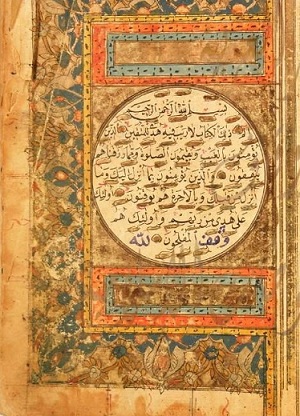 بسم الله الرحمن الرحيم
ذلك الكتاب لا ريب فيه هدى للمتقين الذين
يؤمنون بالغيب ويقيمون الصلوة ومما رزقناهم
ينفقون والذين يؤمنون بما انزل اليك وما
انزل من قبلك وبالآخرة هم يوقنون اولئك
على هدى من ربهم واولئك هم
وقف المفلحون لله